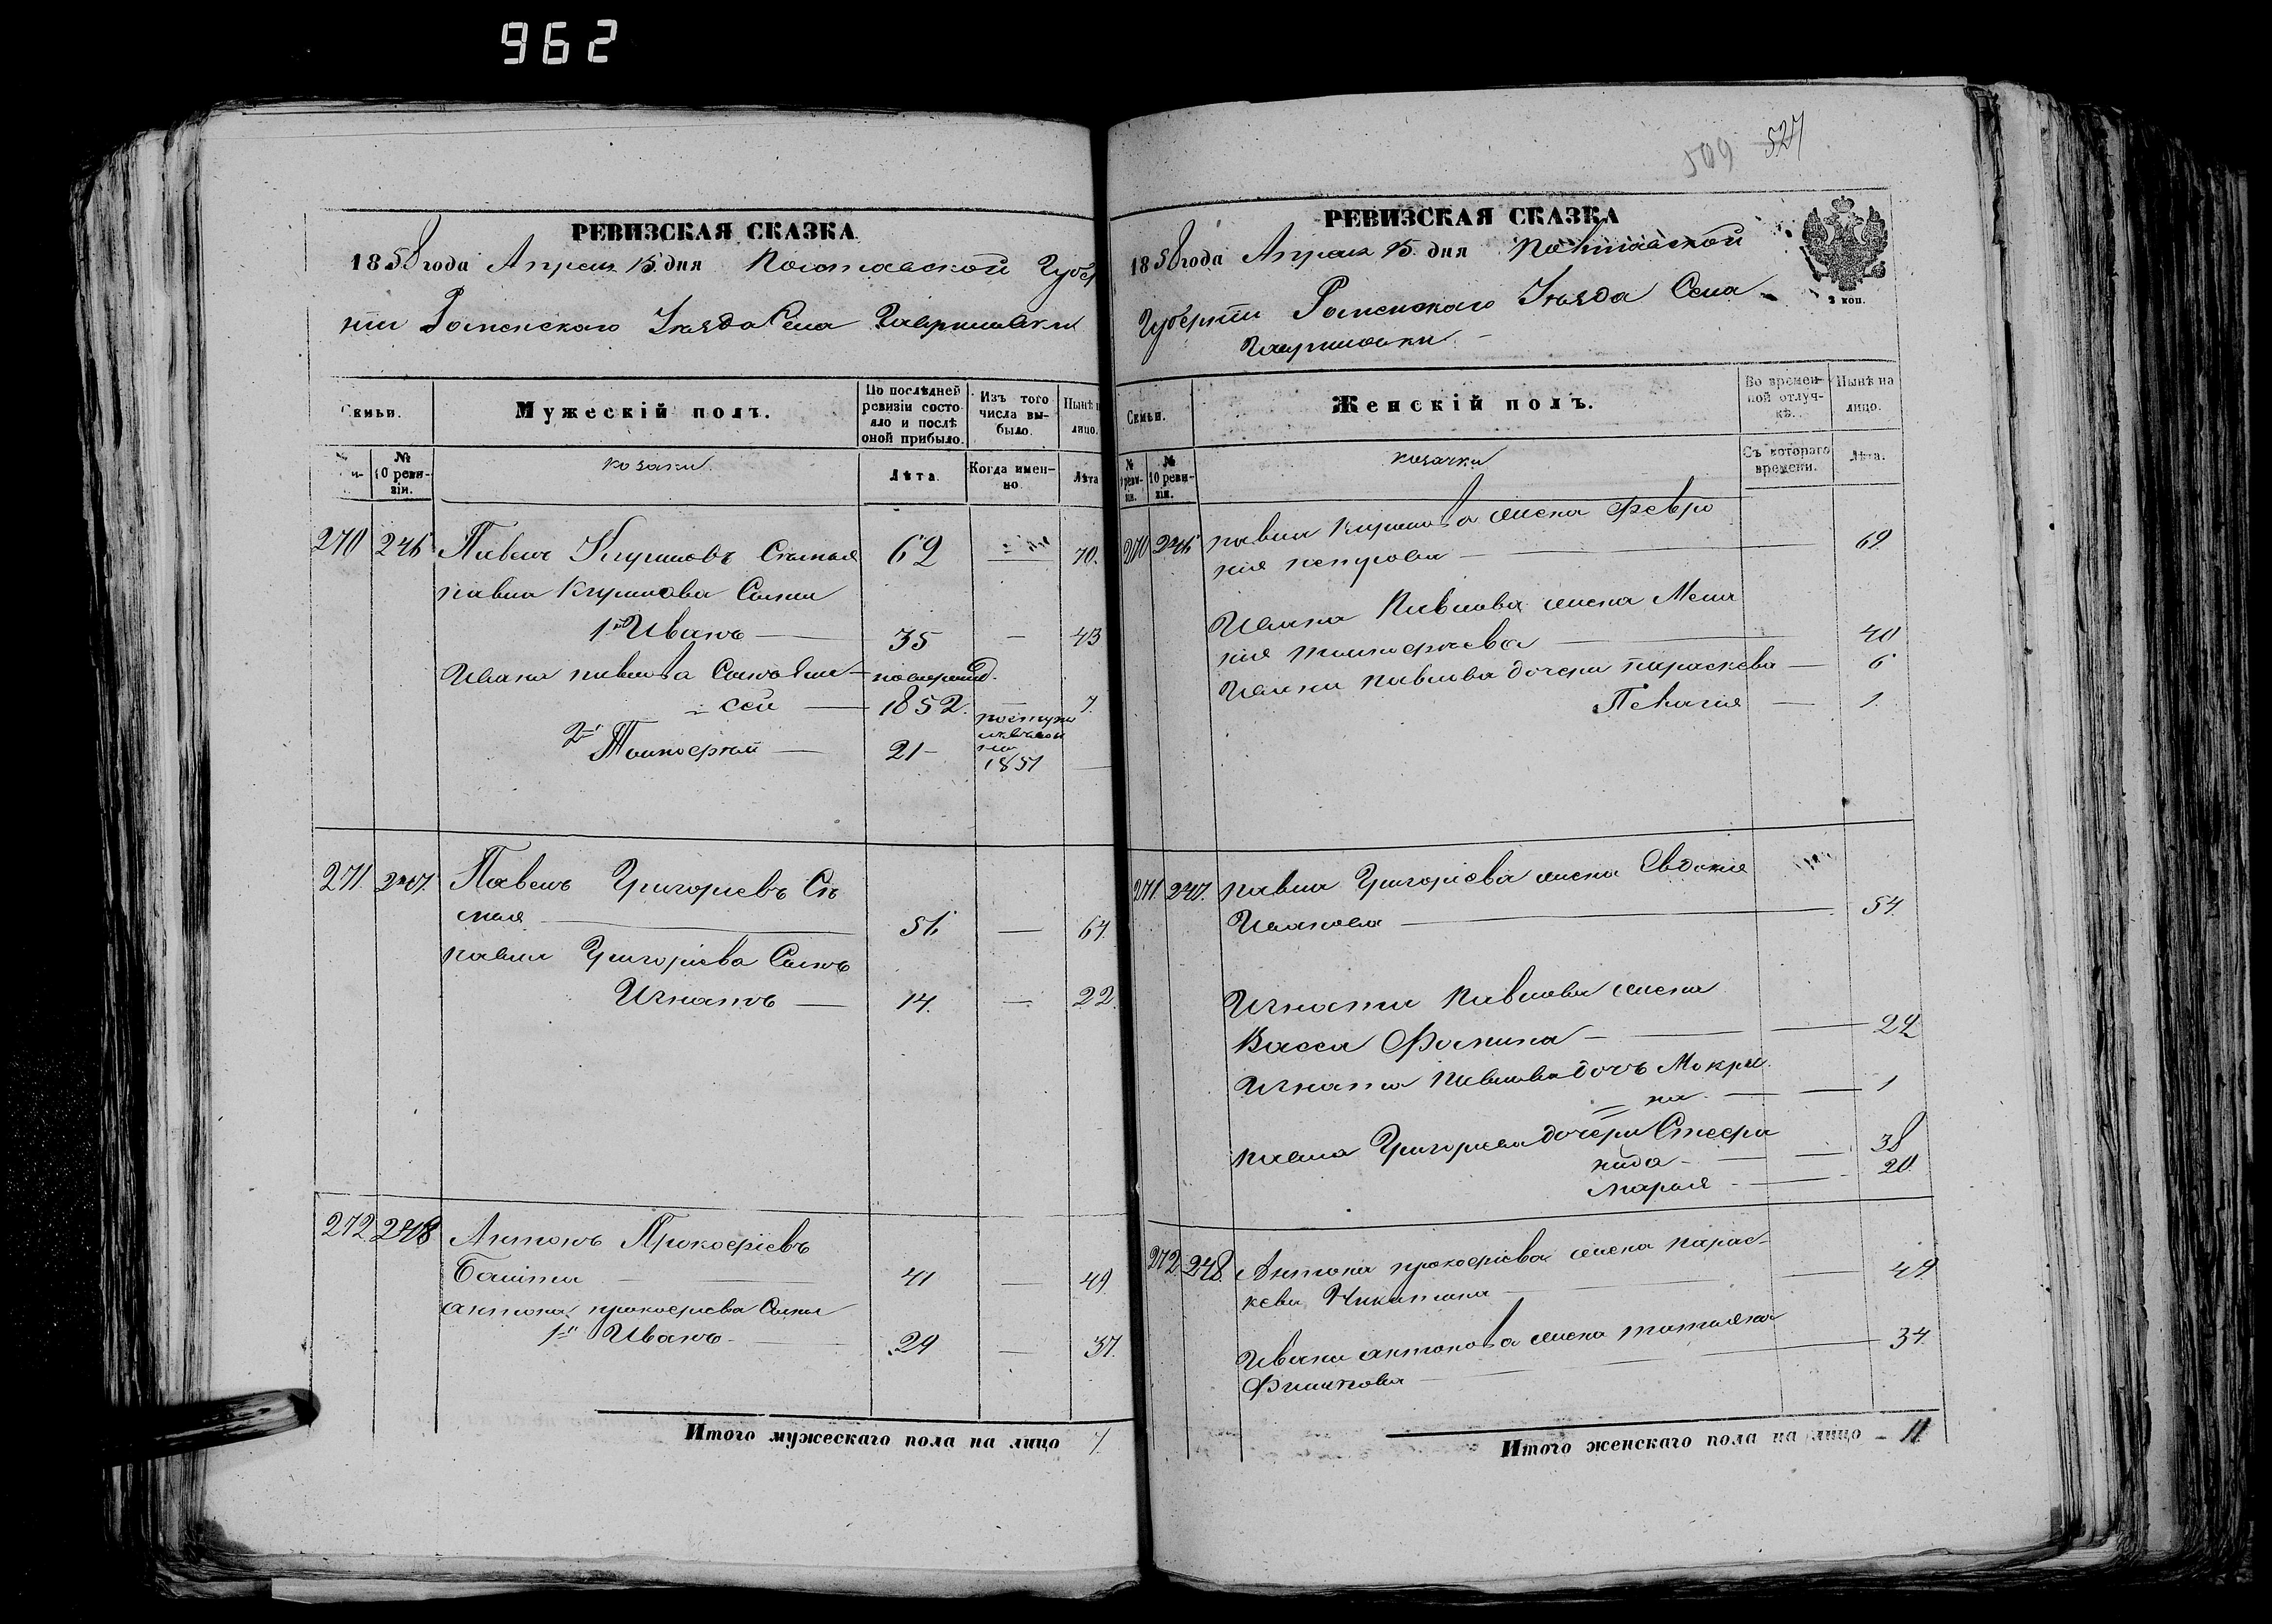 962
РЕВИЗСКАЯ СКАЗКА
1858 года Апреля 15 дня Полтавской Губер
ніи Роменского Уезда Села Гаврилавки
Семьи.
Мужескій полъ.
По послѣдней ревизіи состояло и послѣ оной прибыло.
Изъ того числа выбыло.
Нынѣ на лицо.
№ 10 ревизіи.
козаки
Лѣта.
Когда именно
Лѣта
270 246 Павелъ Кириловъ 62 — 70.
павла Кирилова Сыны
1й Иванъ — 35 — 43
Ивана павлова Сынъ
сей — 1852. — 7
2й Тимофей — 21 —
1851 —
271. 247. Павелъ Григорьевъ Сѣ
мья 56 — 64.
павла Григоріева Сынъ
Игнатъ — 14. — 22
272. 248 Антонъ Прокофіевъ
41 — 49
антона прокофиева Сыны
1й Иванъ — 29 — 37.
Итого мужескаго пола на лицо 7.
509 527
РЕВИЗСКАЯ СКАЗКА
1858 года Апреля 15 дня Полтавской
Губерніи Роменскаго Уезда Села
Гавриловки
2 коп.
Семьи.
Женскій полъ.
Во временной отлучкѣ.
Нынѣ на лицо.
№ ревизіи.
№ 10 ревизіи.
козачки
Съ котораго времени.
Лѣта.
270 246 павла Кирилова жена Февро
нія петрова — 69
Ивана Павлова жена Мела
нія — 40
Ивана Павлова дочери параскева — 6
Пелагия — 1.
271. 247. павла Григоріева жена Евдокия
Иванова — 54.
Игната Павлова жена
Васса Фомина — 24
Игната Павлова дочь Мокры
на — 1
павла Григориева дочери Стефа
нида — 38
марья — 20
272. 248. Антона прокофіева жена парас-
кева Никитина — 49
Ивана антонова жена татияна
Филипова — 34.
Итого женскаго пола на лицо — 11.